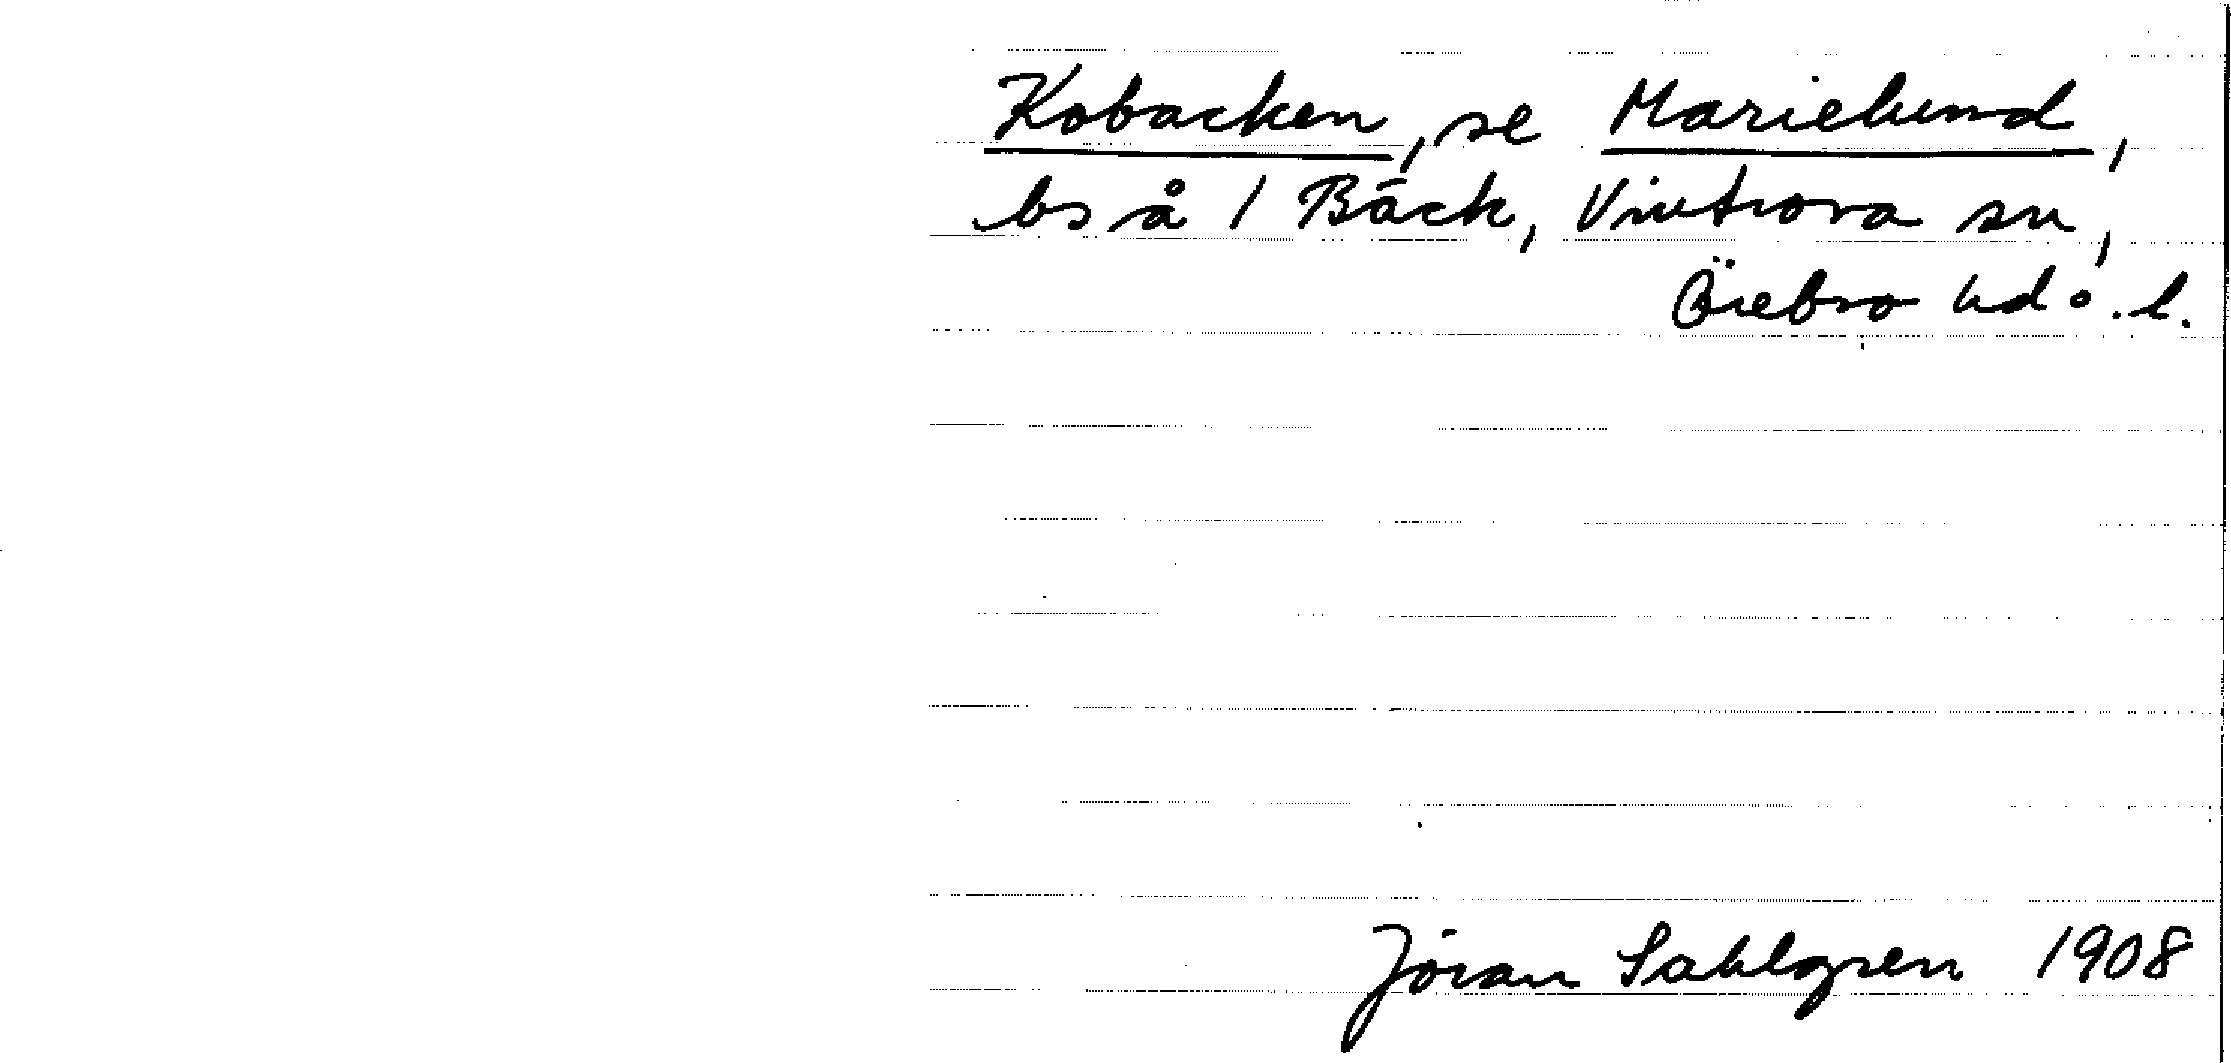 Kobacken, se Marielund,
bs å 1 Bäck, Vintrosa sn,
Örebro hd o. l.
Jöran Sahlgren 1908